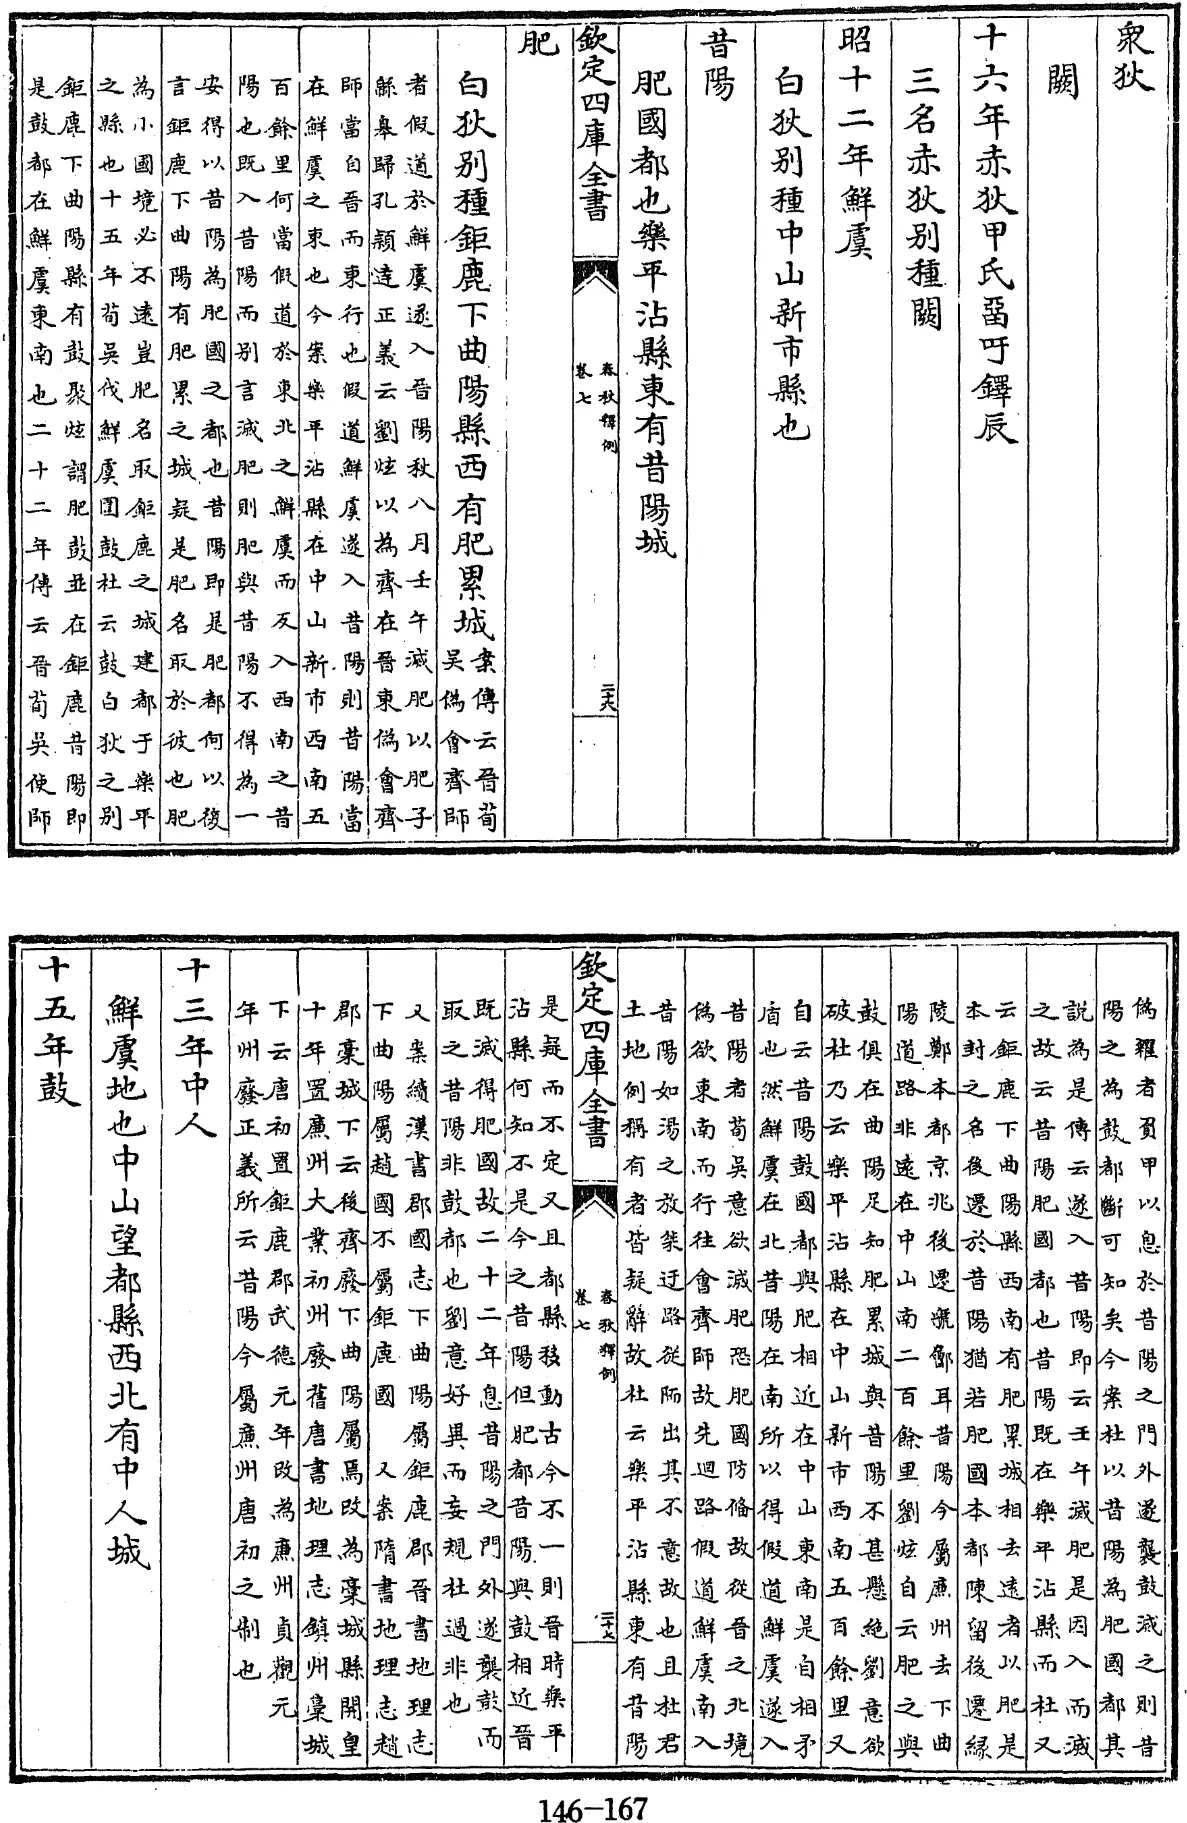 衆狄
闕
十六年赤狄甲氏畱吁鐸辰
三名赤狄別種闕
昭十二年鮮虞
白狄別種中山新市縣也
昔陽
肥國都也樂平沾縣東有昔陽城
欽定四庫全書
春秋釋例
卷七
二十六
肥
白狄別種鉅鹿下曲陽縣西有肥累城案傳云晉荀
吳偽會齊師
者假道於鮮虞遂入晉陽秋八月壬午滅肥以肥子
緜皋歸孔穎達正義云劉炫以為齊在晉東偽會齊
師當自晉而東行也假道鮮虞遂入昔陽則昔陽當
在鮮虞之東也今案樂平沾縣在中山新市西南五
百餘里何當假道於東北之鮮虞而反入西南之昔
陽也既入昔陽而別言滅肥則肥與昔陽不得為一
安得以昔陽為肥國之都也昔陽即是肥都何以復
言鉅鹿下曲陽有肥累之城疑是肥名取於彼也肥
為小國境必不遠豈肥名取鉅鹿之城建都于樂平
之縣也十五年荀吳伐鮮虞圍鼓杜云鼓白狄之別
鉅鹿下曲陽縣有鼓聚炫謂肥鼓並在鉅鹿昔陽即
是鼓都在鮮虞東南也二十二年傳云晉荀吳使師
偽糴者負甲以息於昔陽之門外遂襲鼓滅之則昔
陽之為鼓都斷可知矣今案杜以昔陽為肥國都其
說為是傳云遂入昔陽即云壬午滅肥是因入而滅
之故云昔陽肥國都也昔陽既在樂平沾縣而杜又
云鉅鹿下曲陽縣西南有肥累城相去遠者以肥是
本封之名後遷於昔陽猶若肥國本都陳留後遷緣
陵鄭本都京兆後遷虢鄶耳昔陽今屬廉州去下曲
陽道路非遠在中山南二百餘里劉炫自云肥之與
鼓俱在曲陽足知肥累城與昔陽不甚懸絕劉意欲
破杜乃云樂平沾縣在中山新市西南五百餘里又
自云昔陽鼓國都與肥相近在中山東南是自相矛
盾也然鮮虞在北昔陽在南所以得假道鮮虞遂入
昔陽者荀吳意欲滅肥恐肥國防備故從晉之北境
偽欲東南而行往會齊師故先迴路假道鮮虞南入
昔陽如湯之放桀迂路從陑出其不意故也且杜君
土地例稱有者皆疑辭故杜云樂平沾縣東有昔陽
欽定四庫全書
春秋釋例
卷七
二十七
是疑而不定又且都縣移動古今不一則晉時樂平
沾縣何知不是今之昔陽但肥都昔陽與鼓相近晉
既滅得肥國故二十二年息昔陽之門外遂襲鼓而
取之昔陽非鼓都也劉意好異而妄規杜過非也
又案續漢書郡國志下曲陽屬鉅鹿郡晉書地理志
下曲陽屬趙國不屬鉅鹿國 又案隋書地理志趙
郡稾城下云後齊廢下曲陽屬焉改為稾城縣開皇
十年置廉州大業初州廢舊唐書地理志鎮州稾城
下云唐初置鉅鹿郡武德元年改為廉州貞觀元
年州廢正義所云昔陽今屬廉州唐初之制也
十三年中人
鮮虞地也中山望都縣西北有中人城
十五年鼓
146-167